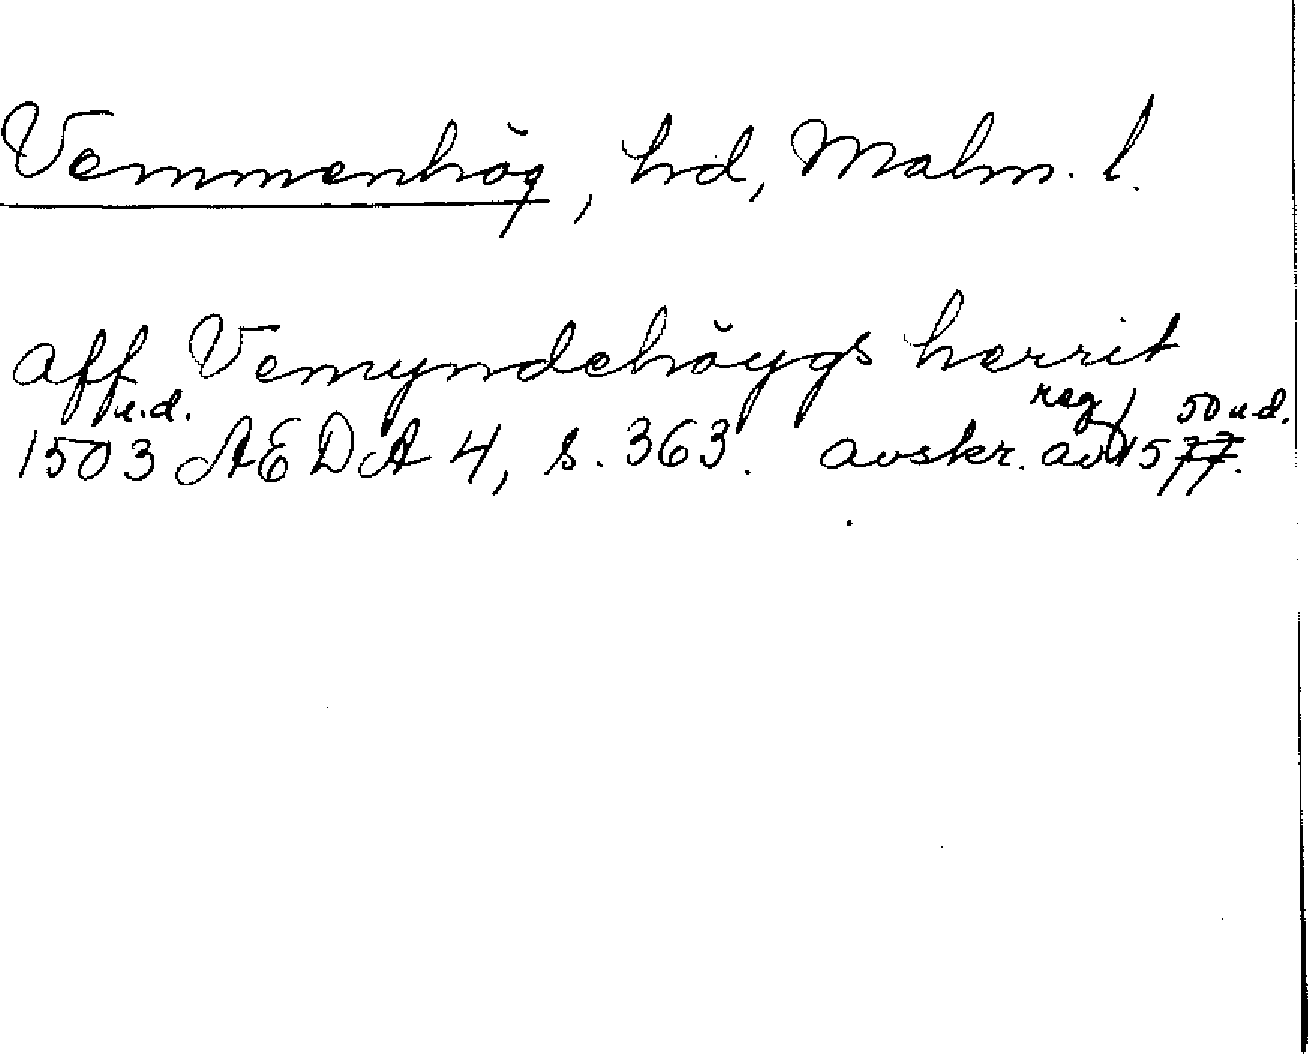 Vemmenhög, hd, Malm. l.
aff Vemyndehöygs herrit
u.d. reg 50 u d.
1503 AEDA 4, s. 363. avskr. av 1577.